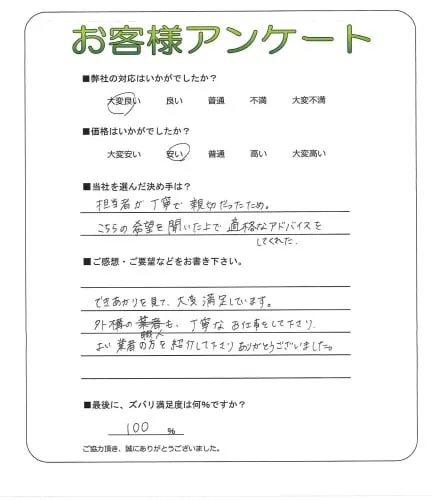 お客様アンケート
■弊社の対応はいかがでしたか？
大変良い 良い 普通 不満 大変不満
■価格はいかがでしたか？
大変安い 安い 普通 高い 大変高い
■当社を選んだ決め手は？
担当者が丁寧で親切だったため。
こちらの希望を聞いた上で適格なアドバイスを
してくれた。
■ご感想・ご要望などをお書き下さい。
できあがりを見て、大変満足しています。
外構の業者も、丁寧なお仕事をして下さり、
職人
よい業者の方を紹介して下さりありがとうございました。
■最後に、ズバリ満足度は何％ですか？
100 ％
ご協力頂き、誠にありがとうございました。